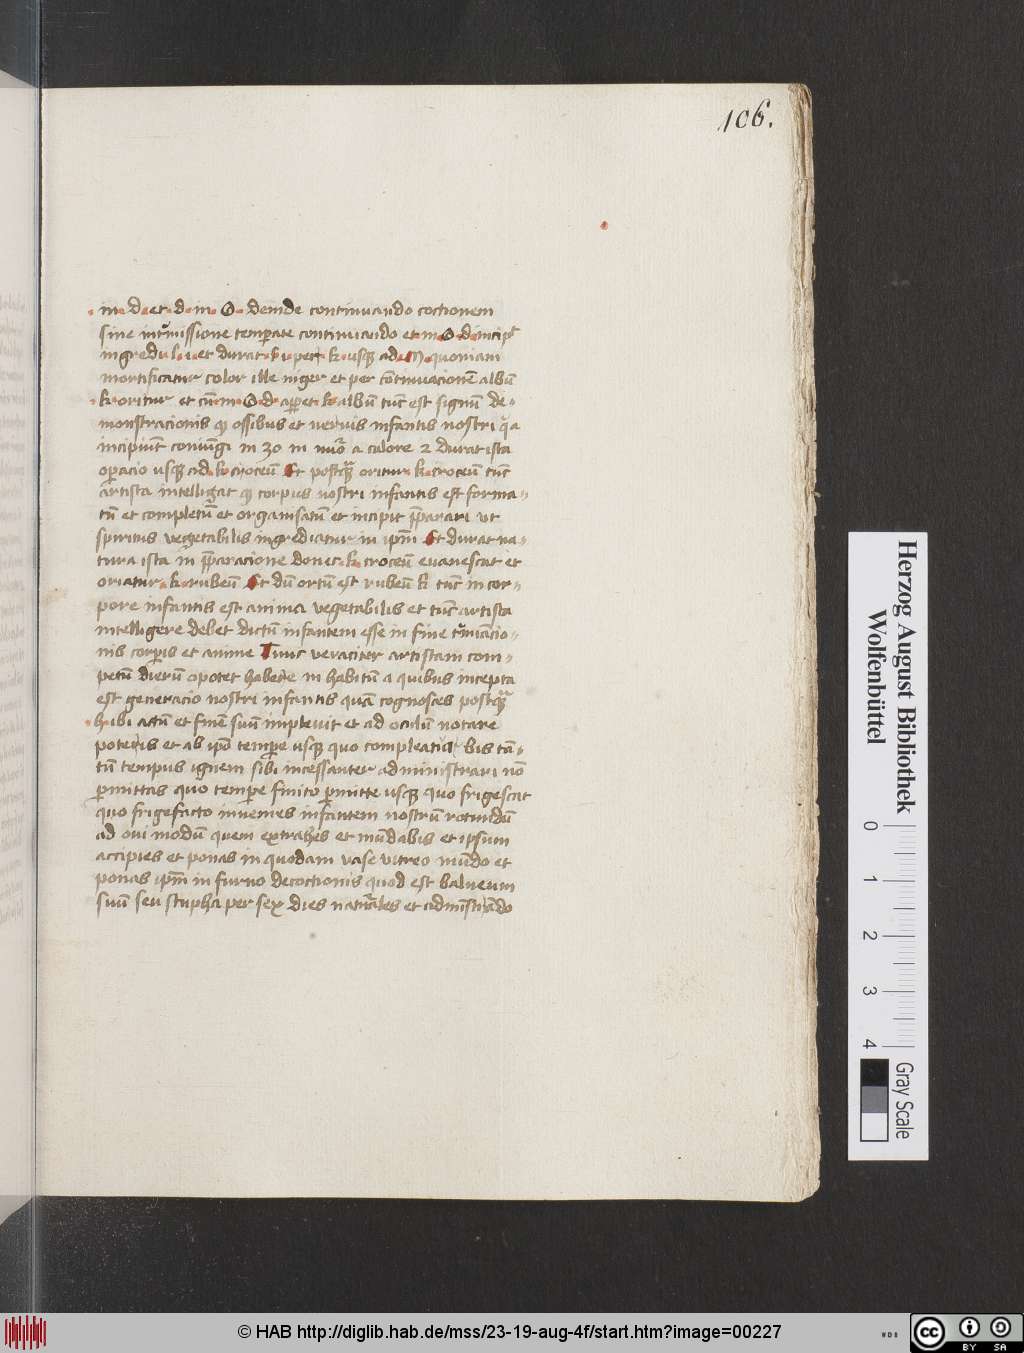 106.
· m · d · et · d · m · O · deinde continuando coctionem
sine int̄missione temperate continuando et · m · O · d · incipit
ingredi v · l · i · et durat · v · per · k · usq̄ ad · quoniam
mortificatur color ille niger et per cōtinuacionē albū
· k · oritur et cū · m · O · d · et · k · albū tūc est signū de-
monstracionis q̄ ossibus et nervis infantis nostri q̄a
incipiūt coniūgi in 30 m a calore 2 durat ista
operacio usq̄ ad · k · croceū Et postq̄ oritur · k · croceū tūc
artista intelligat q̄ corpus nostri infantis est forma-
tū et completū et organisatū et incipit p̄parari ut
spiritus vegetabilis ingrediatur in ip̄m Et durat na-
tura ista in p̄paracione donec · k · croceū evanescat et
oriatur · k · rubeū Et dū ortū est rubeū k tūc in cor-
pore infantis est anima vegetabilis et tūc artista
intelligere debet dictū infantem esse in fine
nis corpis et anime Tunc veraciter artistam com-
petū dierū opotet habere in habitū a quibus incepta
est generacio nostri infantis quā cognosces postq̄
h · ibi actū et finē suū implevit et ad oculū notare
poteris et ab ipō tempe usq̄ quo bis tā-
tū tempus ignem sibi incessanter administrari nō
p̄mittas quo tempe finito p̄mitte usq̄ quo frigescat
quo frigefacto invenies infantem nostrū rotundū
ad ovi modū quem extrahes et mūdabis et ipsum
accipies et ponas in quodam vase vitreo mūdo et
ponas ip̄m in furno decoctionis quod est balneum
suū seu stupha per sex dies naturales et admīstrādo
Herzog August Bibliothek
Wolfenbüttel
0 1 2 3 4
Gray Scale
© HAB http://diglib.hab.de/mss/23-19-aug-4f/start.htm?image=00227
WDB
cc BY SA